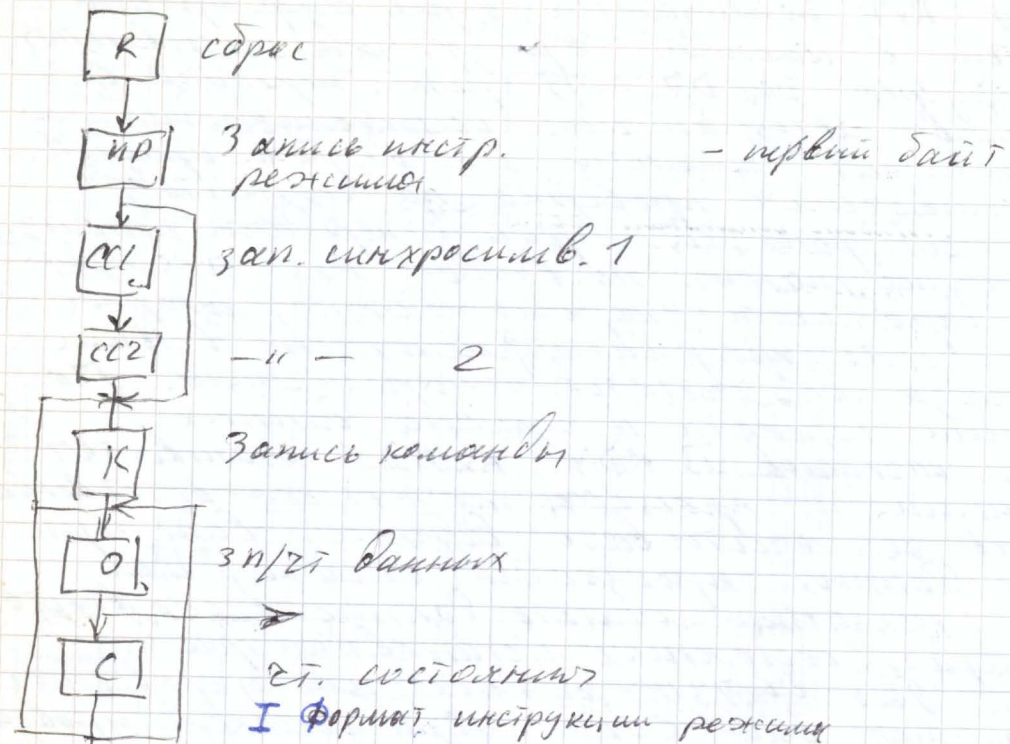 R сброс
ИР Запись инстр. - первый байт
режима
СС1 зап. синхросимв. 1
СС2 —"— 2
К Запись команды
О зп/чт данных
С чт. состояния
I Формат инструкции режима